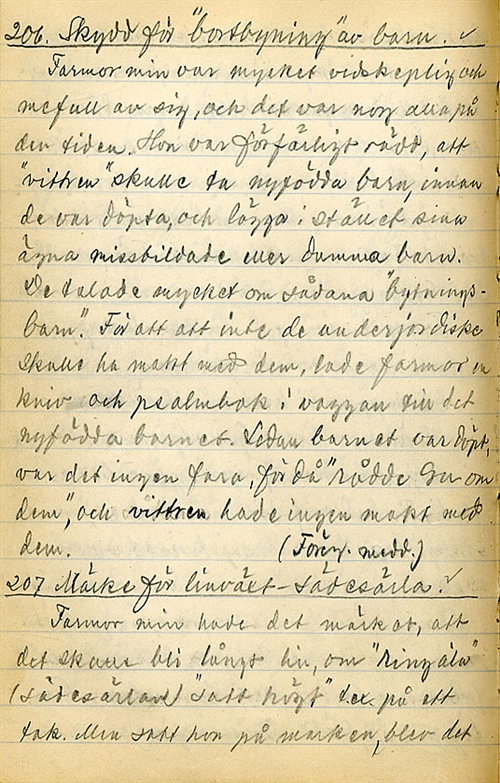 206. Skydd för "bortbyning" av barn. ✓
Farmor min var mycket vidskeplig och
mefull av sig, och det var nog alla på
den tiden. Hon var förfärligt rädd, att
"vittren" skulle ta nyfödda barn, innan
de var döpta, och lägga i stället sina
ägna missbildade eller dumma barn.
De talade mycket om sådana "bytnings-
barn". För att att inte de underjordiske
skulle ha makt med dem, lade farmor en
kniv och psalmbok i vaggan till det
nyfödda barnet. Sedan barnet var döpt,
var det ingen fara, för då "rådde Gu om
dem", och vittren hade ingen makt med
dem. (Föreg. medd.)
207 Märke för linväxt - sädesärla. ✓
Farmor min hade det märket, att
det skulle bli långt lin, om "ringäla"
(sädesärlan) "satt högt" t.ex. på ett
tak. Men satt hon på marken, blev det